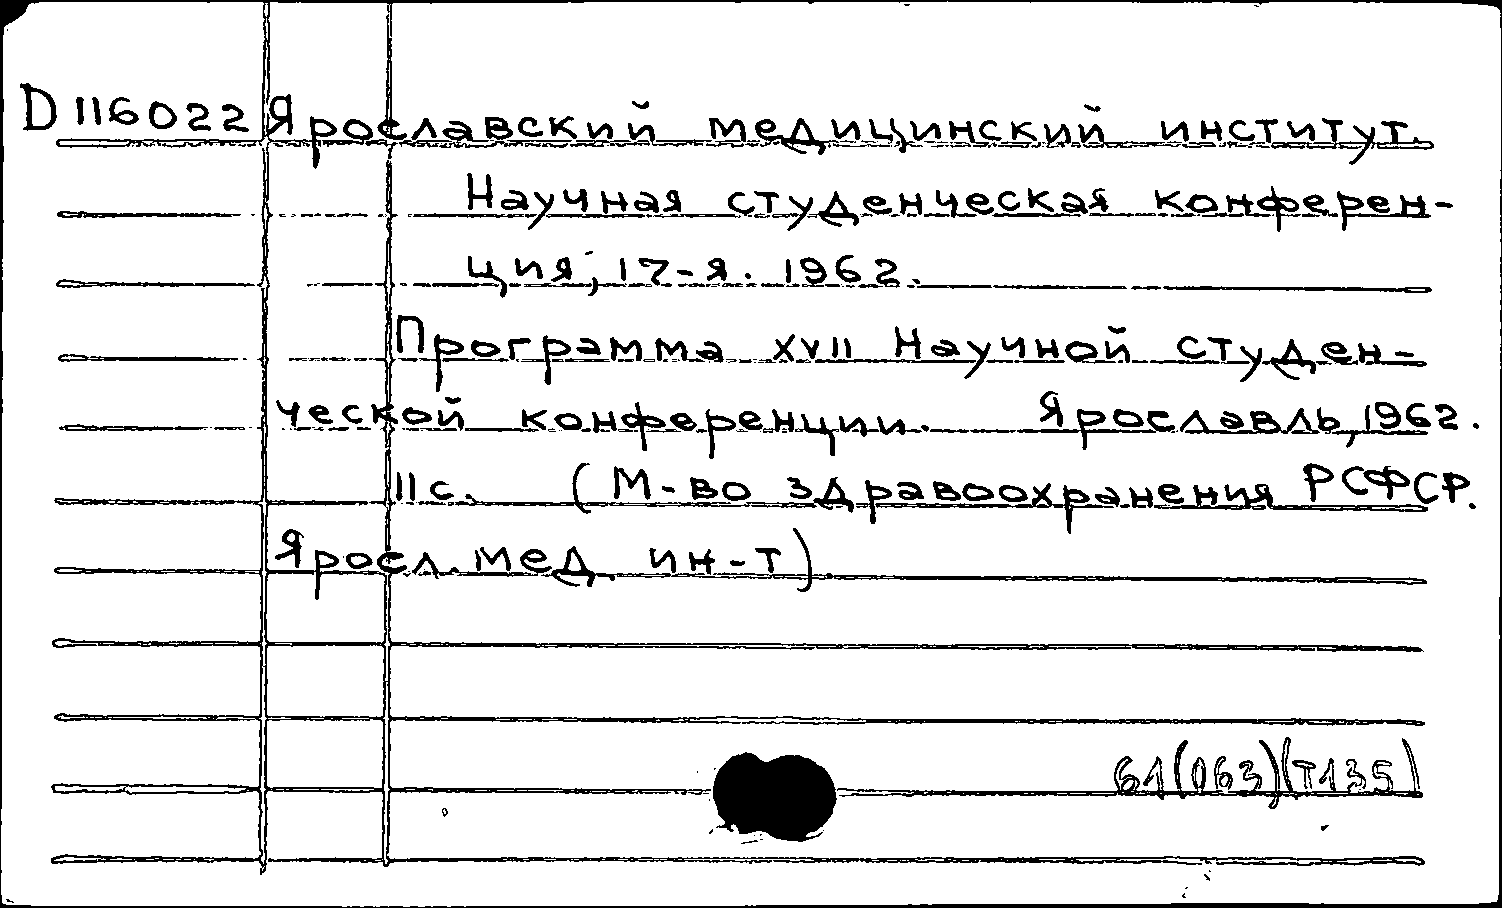 D 116022 Ярославский медицинский институт.
Научная студенческая конферен-
ция, 17-я. 1962.
Программа XVII Научной студен-
ческой конференции. Ярославль, 1962.
11с. (М-во здравоохранения РСФСР.
Яросл. мед. ин-т)
61(063)(Т135)